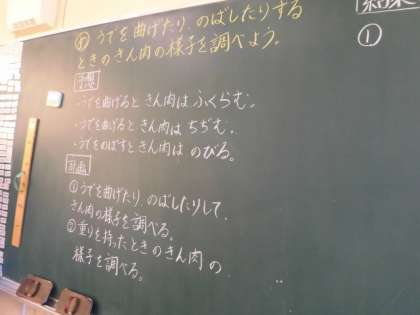 うでを曲げたり、のばしたりする
ときのきん肉の様子を調べよう。
予想
・うでを曲げると きん肉は ふくらむ。
・うでを曲げると きん肉は ちぢむ。
・うでをのばすと きん肉は のびる。
計画
①うでを曲げたり、のばしたりして、
きん肉の様子を調べる。
②重りを持ったときのきん肉の
様子を調べる。
結果
①